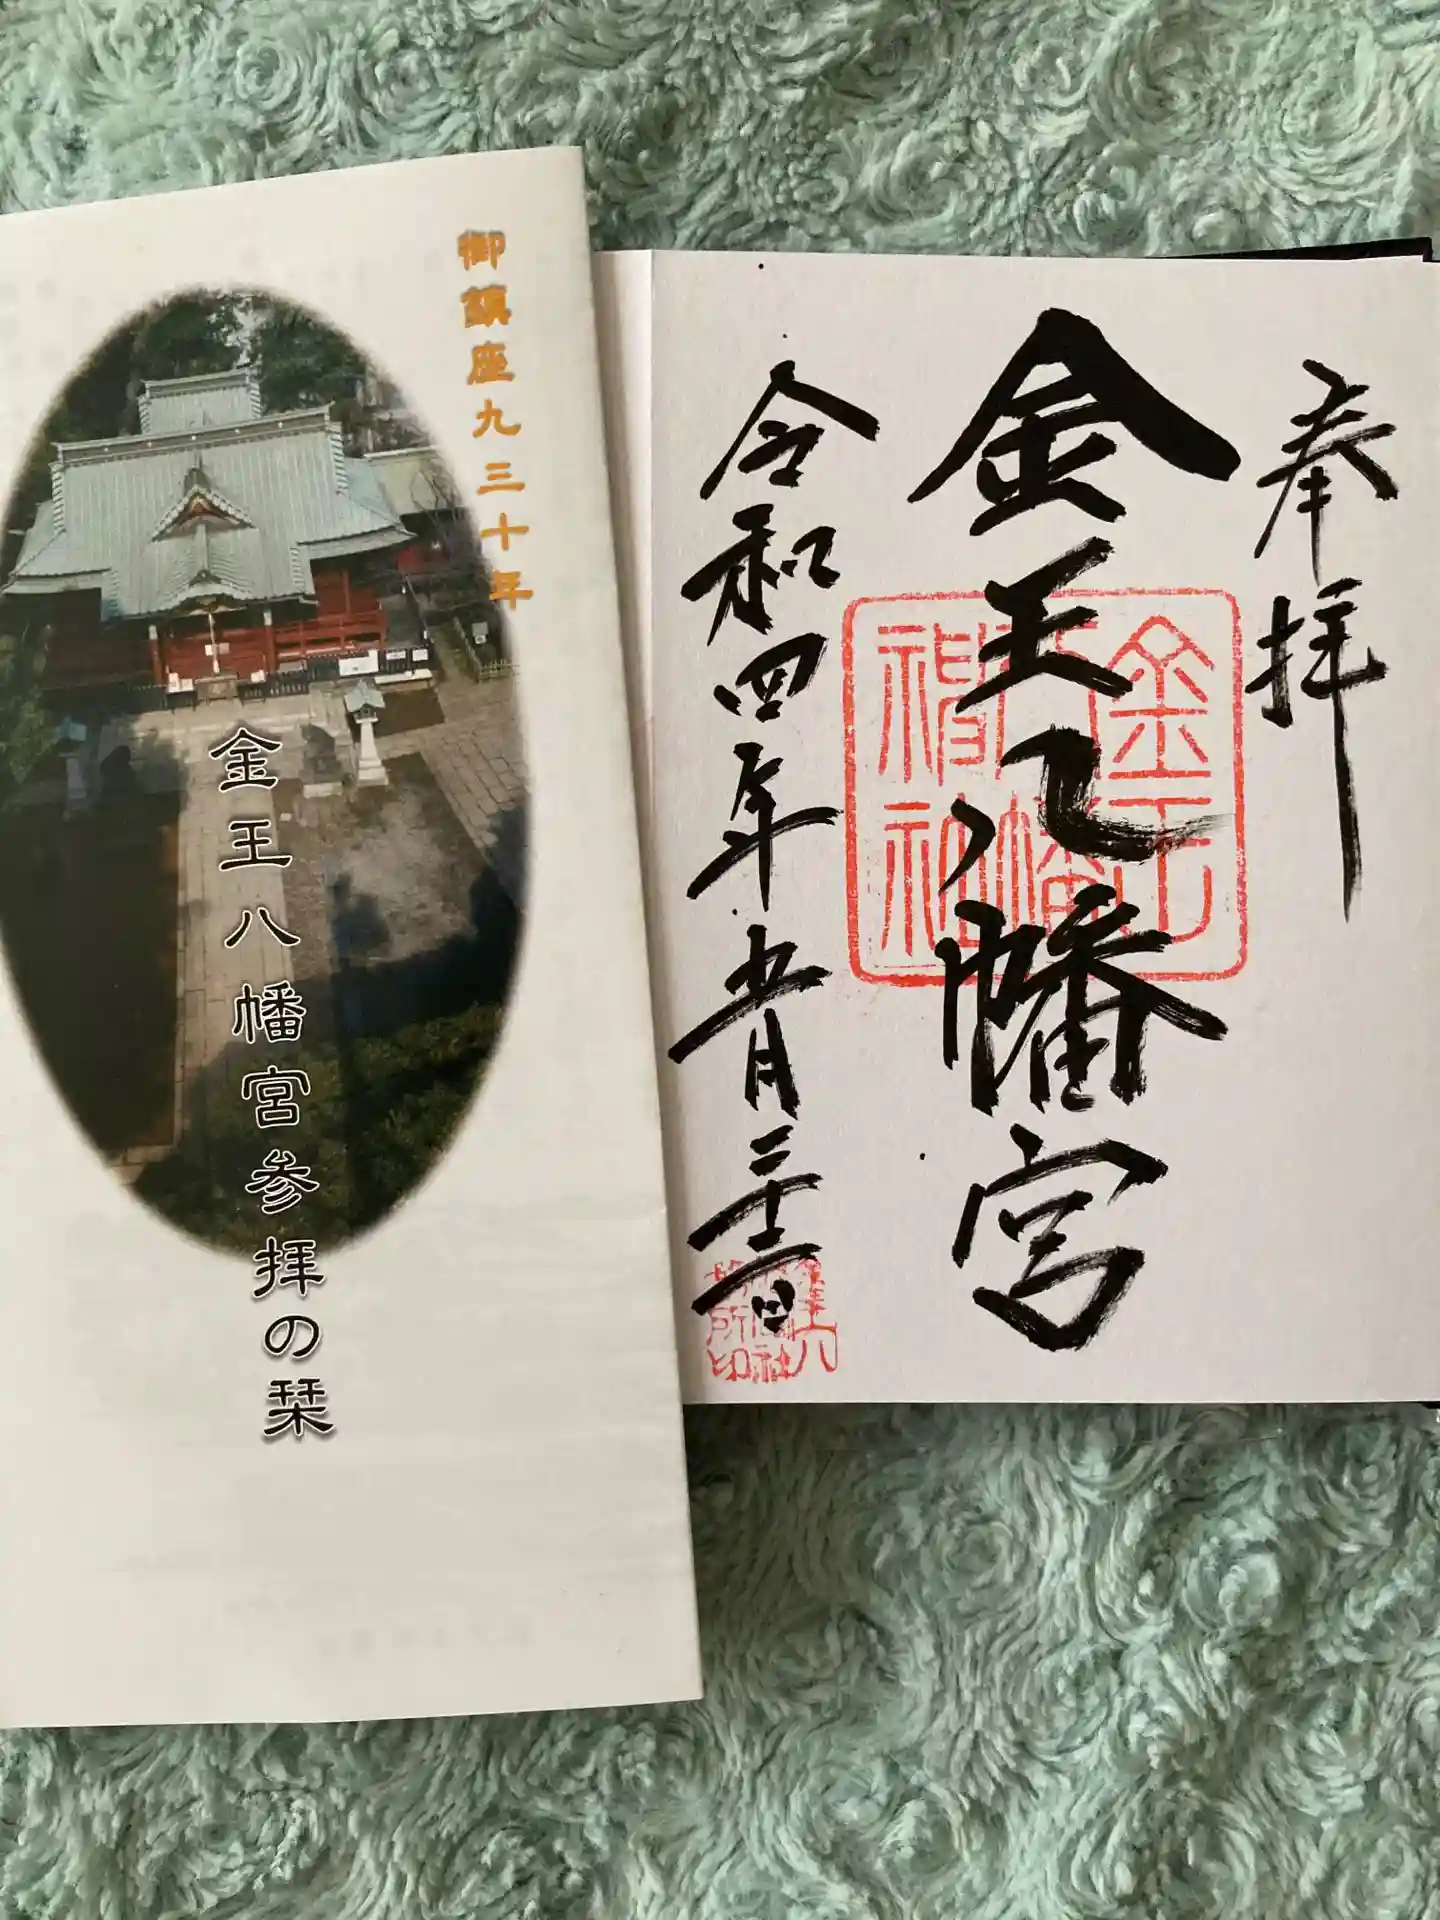 御鎮座九三十年
金王八幡宮参拝の栞
奉拝
金王八幡宮
金王八幡神社
令和四年五月三十一日